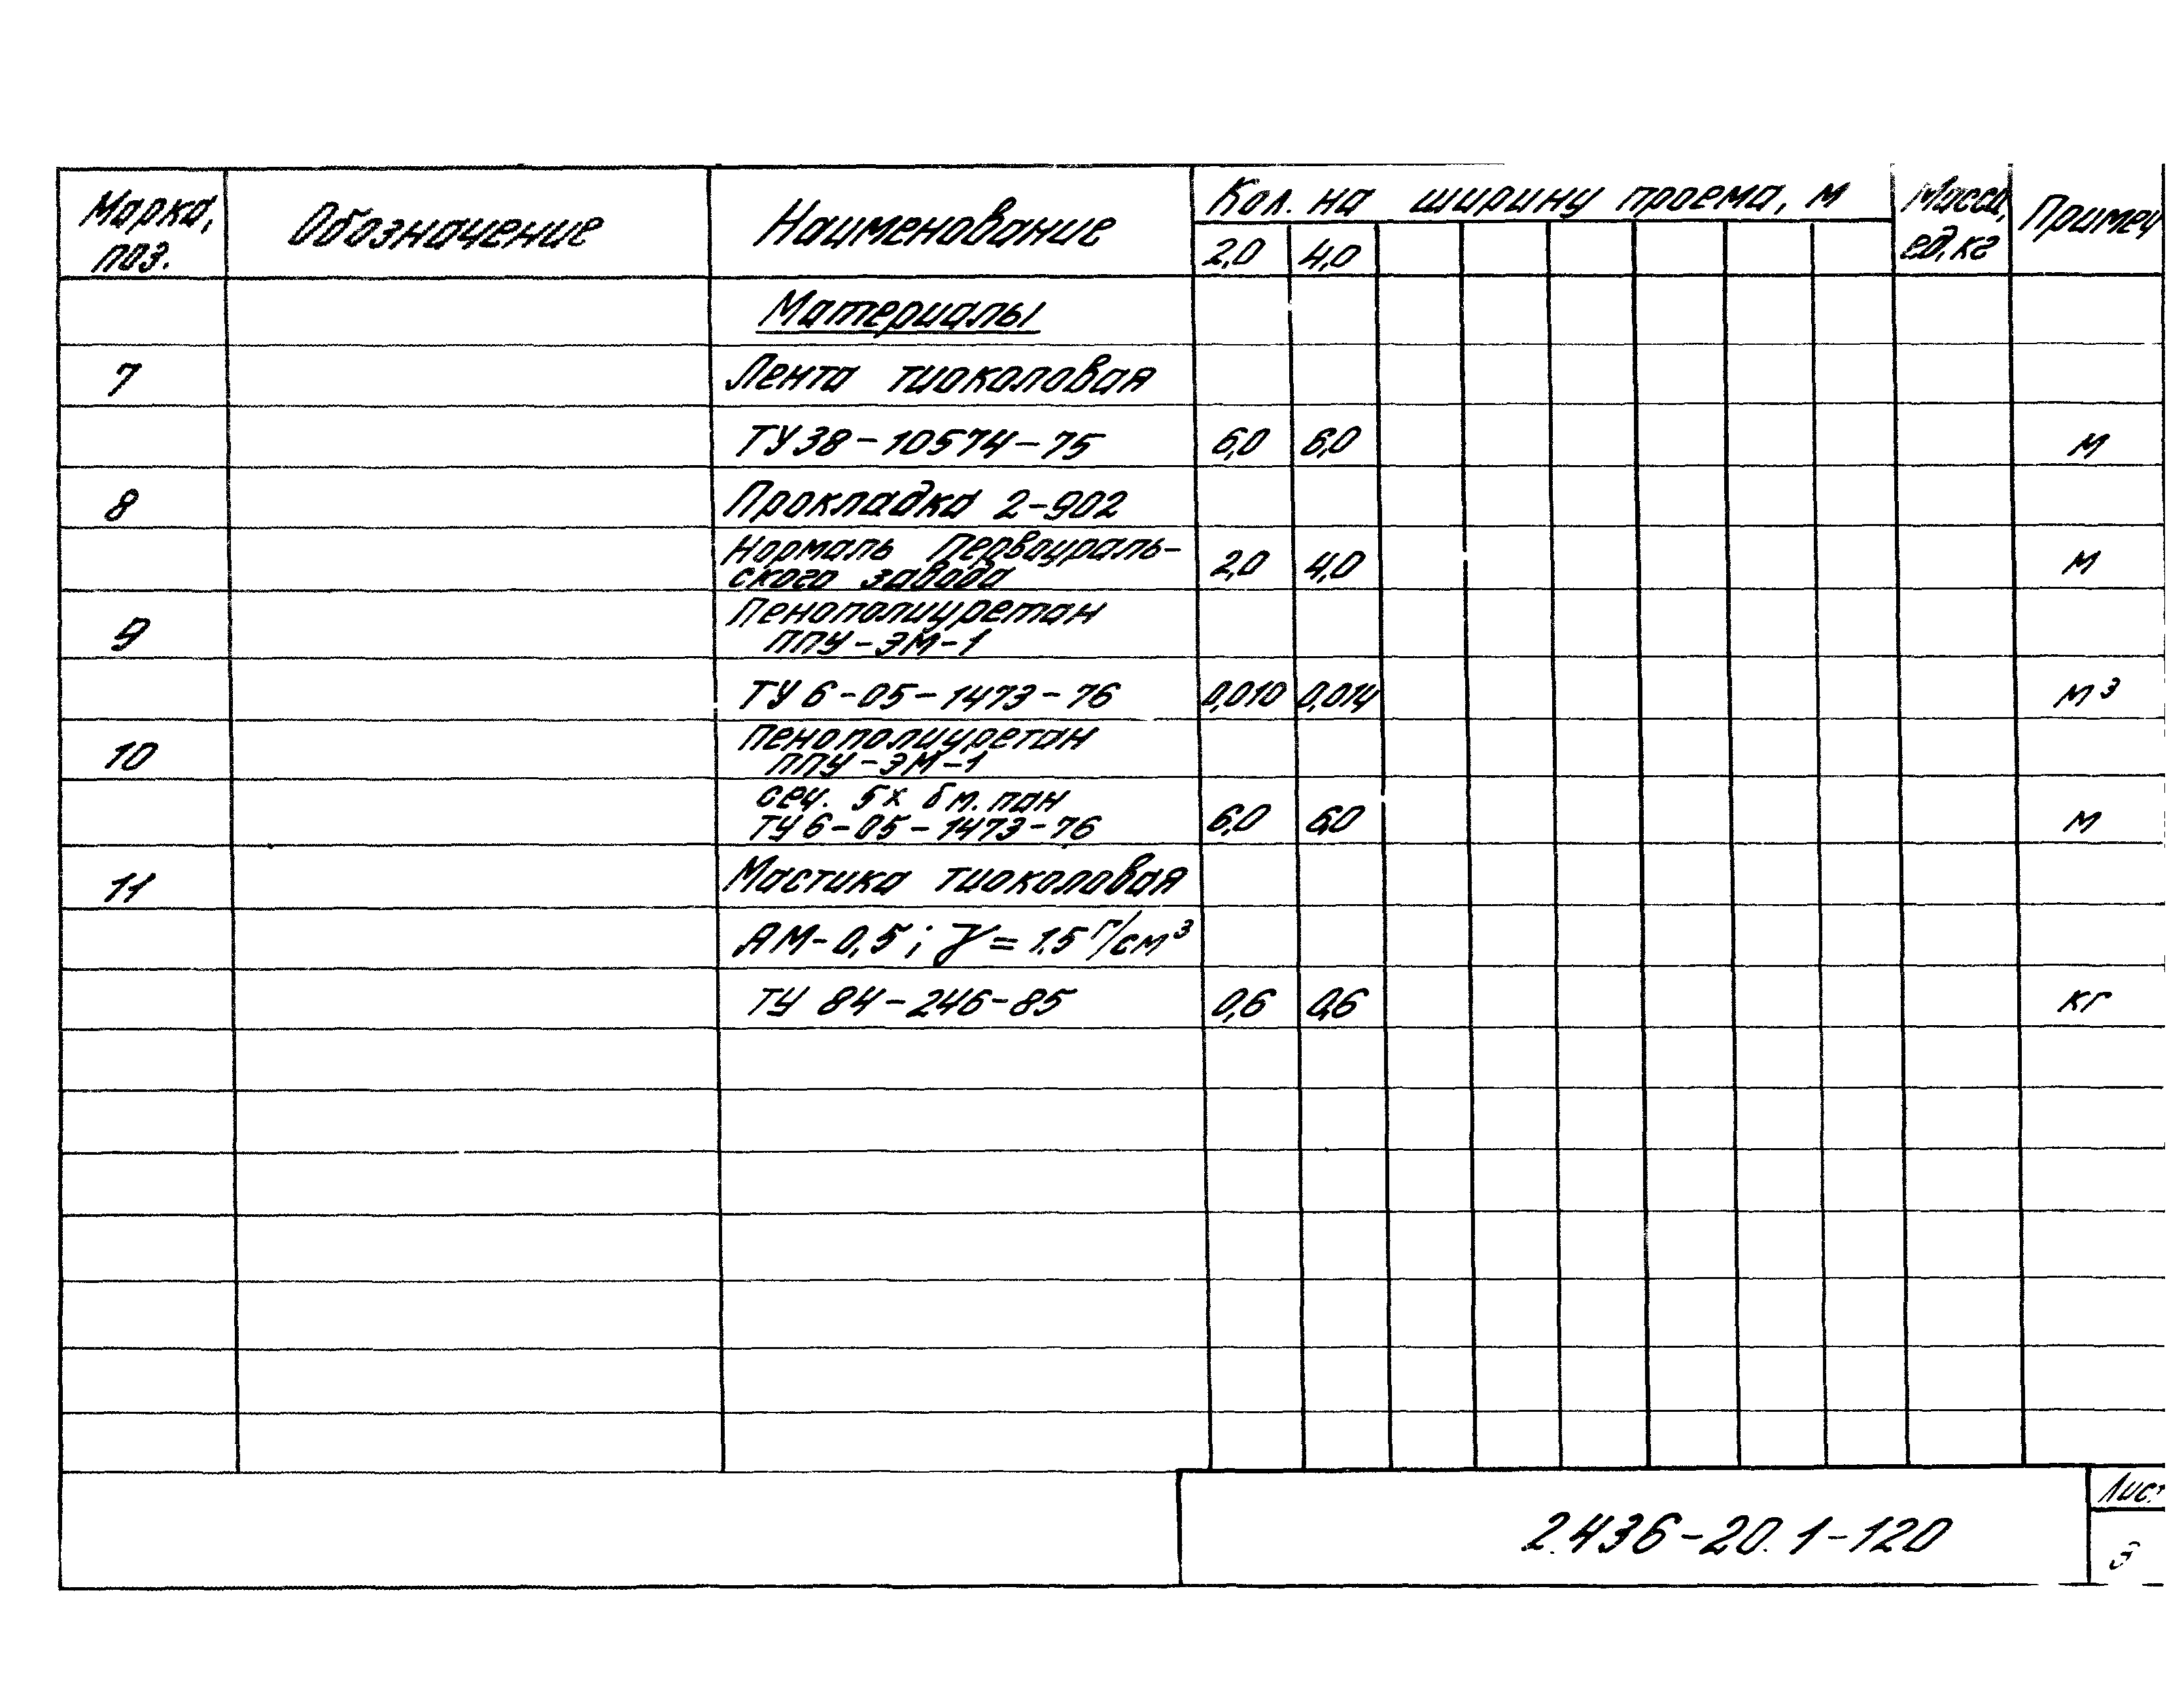 Марка, поз.
Обозначение
Наименование
Кол. на ширину проема, м
2,0 4,0
Масса, ед, кг
Примеч
Материалы
7 Лента тиоколовая
ТУ 38-10574-75 6,0 6,0 м
8 Прокладка 2-902
Нормаль Первоураль-
ского завода 2,0 4,0 м
9 Пенополиуретан
ППУ-ЭМ-1
ТУ 6-05-1473-76 0,010 0,014 м³
10 Пенополиуретан
ППУ-ЭМ-1
сеч. 5х
ТУ 6-05-1473-76 6,0 6,0 м
11 Мастика тиоколовая
АМ-0,5; γ = 1.5 г/см³
ТУ 84-246-85 0,6 0,6 кг
2.436-20.1-120
Лист
3